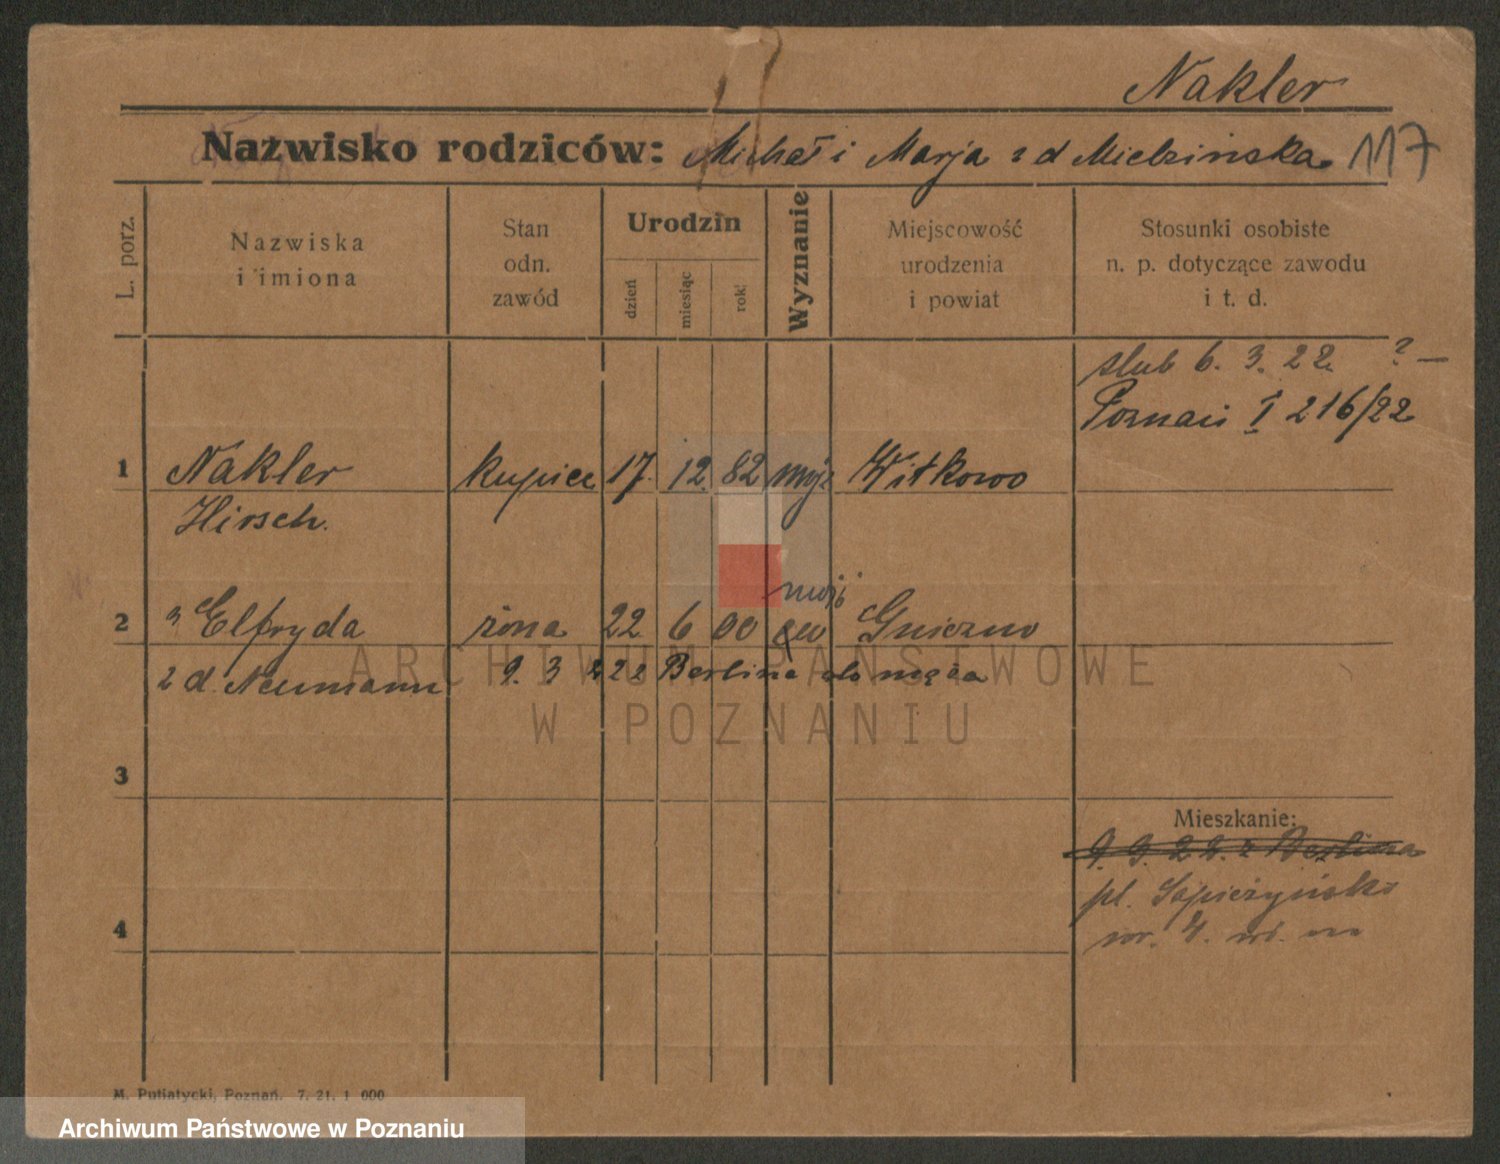 Nakler
Nazwisko rodziców: Michał i Marja z d Mielzinska 117
L. porz.
Nazwiska i imiona
Stan odn. zawód
Urodzin
dzień
miesiąc
rok
Wyznanie
Miejscowość urodzenia i powiat
Stosunki osobiste n. p. dotyczące zawodu i t. d.
ślub 6. 3. 22. ? —
Poznań I 216/22
1 Nakler kupiec 17. 12. 82 mojż Witkowo
Hirsch.
mojż
2 Elfryda żona 22 6 00 Gniezno
z d. Neumann 9. 3 22 Berlina do męża
ARCHIWUM PAŃSTWOWE
W POZNANIU
3
Mieszkanie:
9. 3. 22. z Berlina
pl. Sapieżyński
4 nr. 4.
M. Putiatycki, Poznań. 7. 21. 1 000
Archiwum Państwowe w Poznaniu